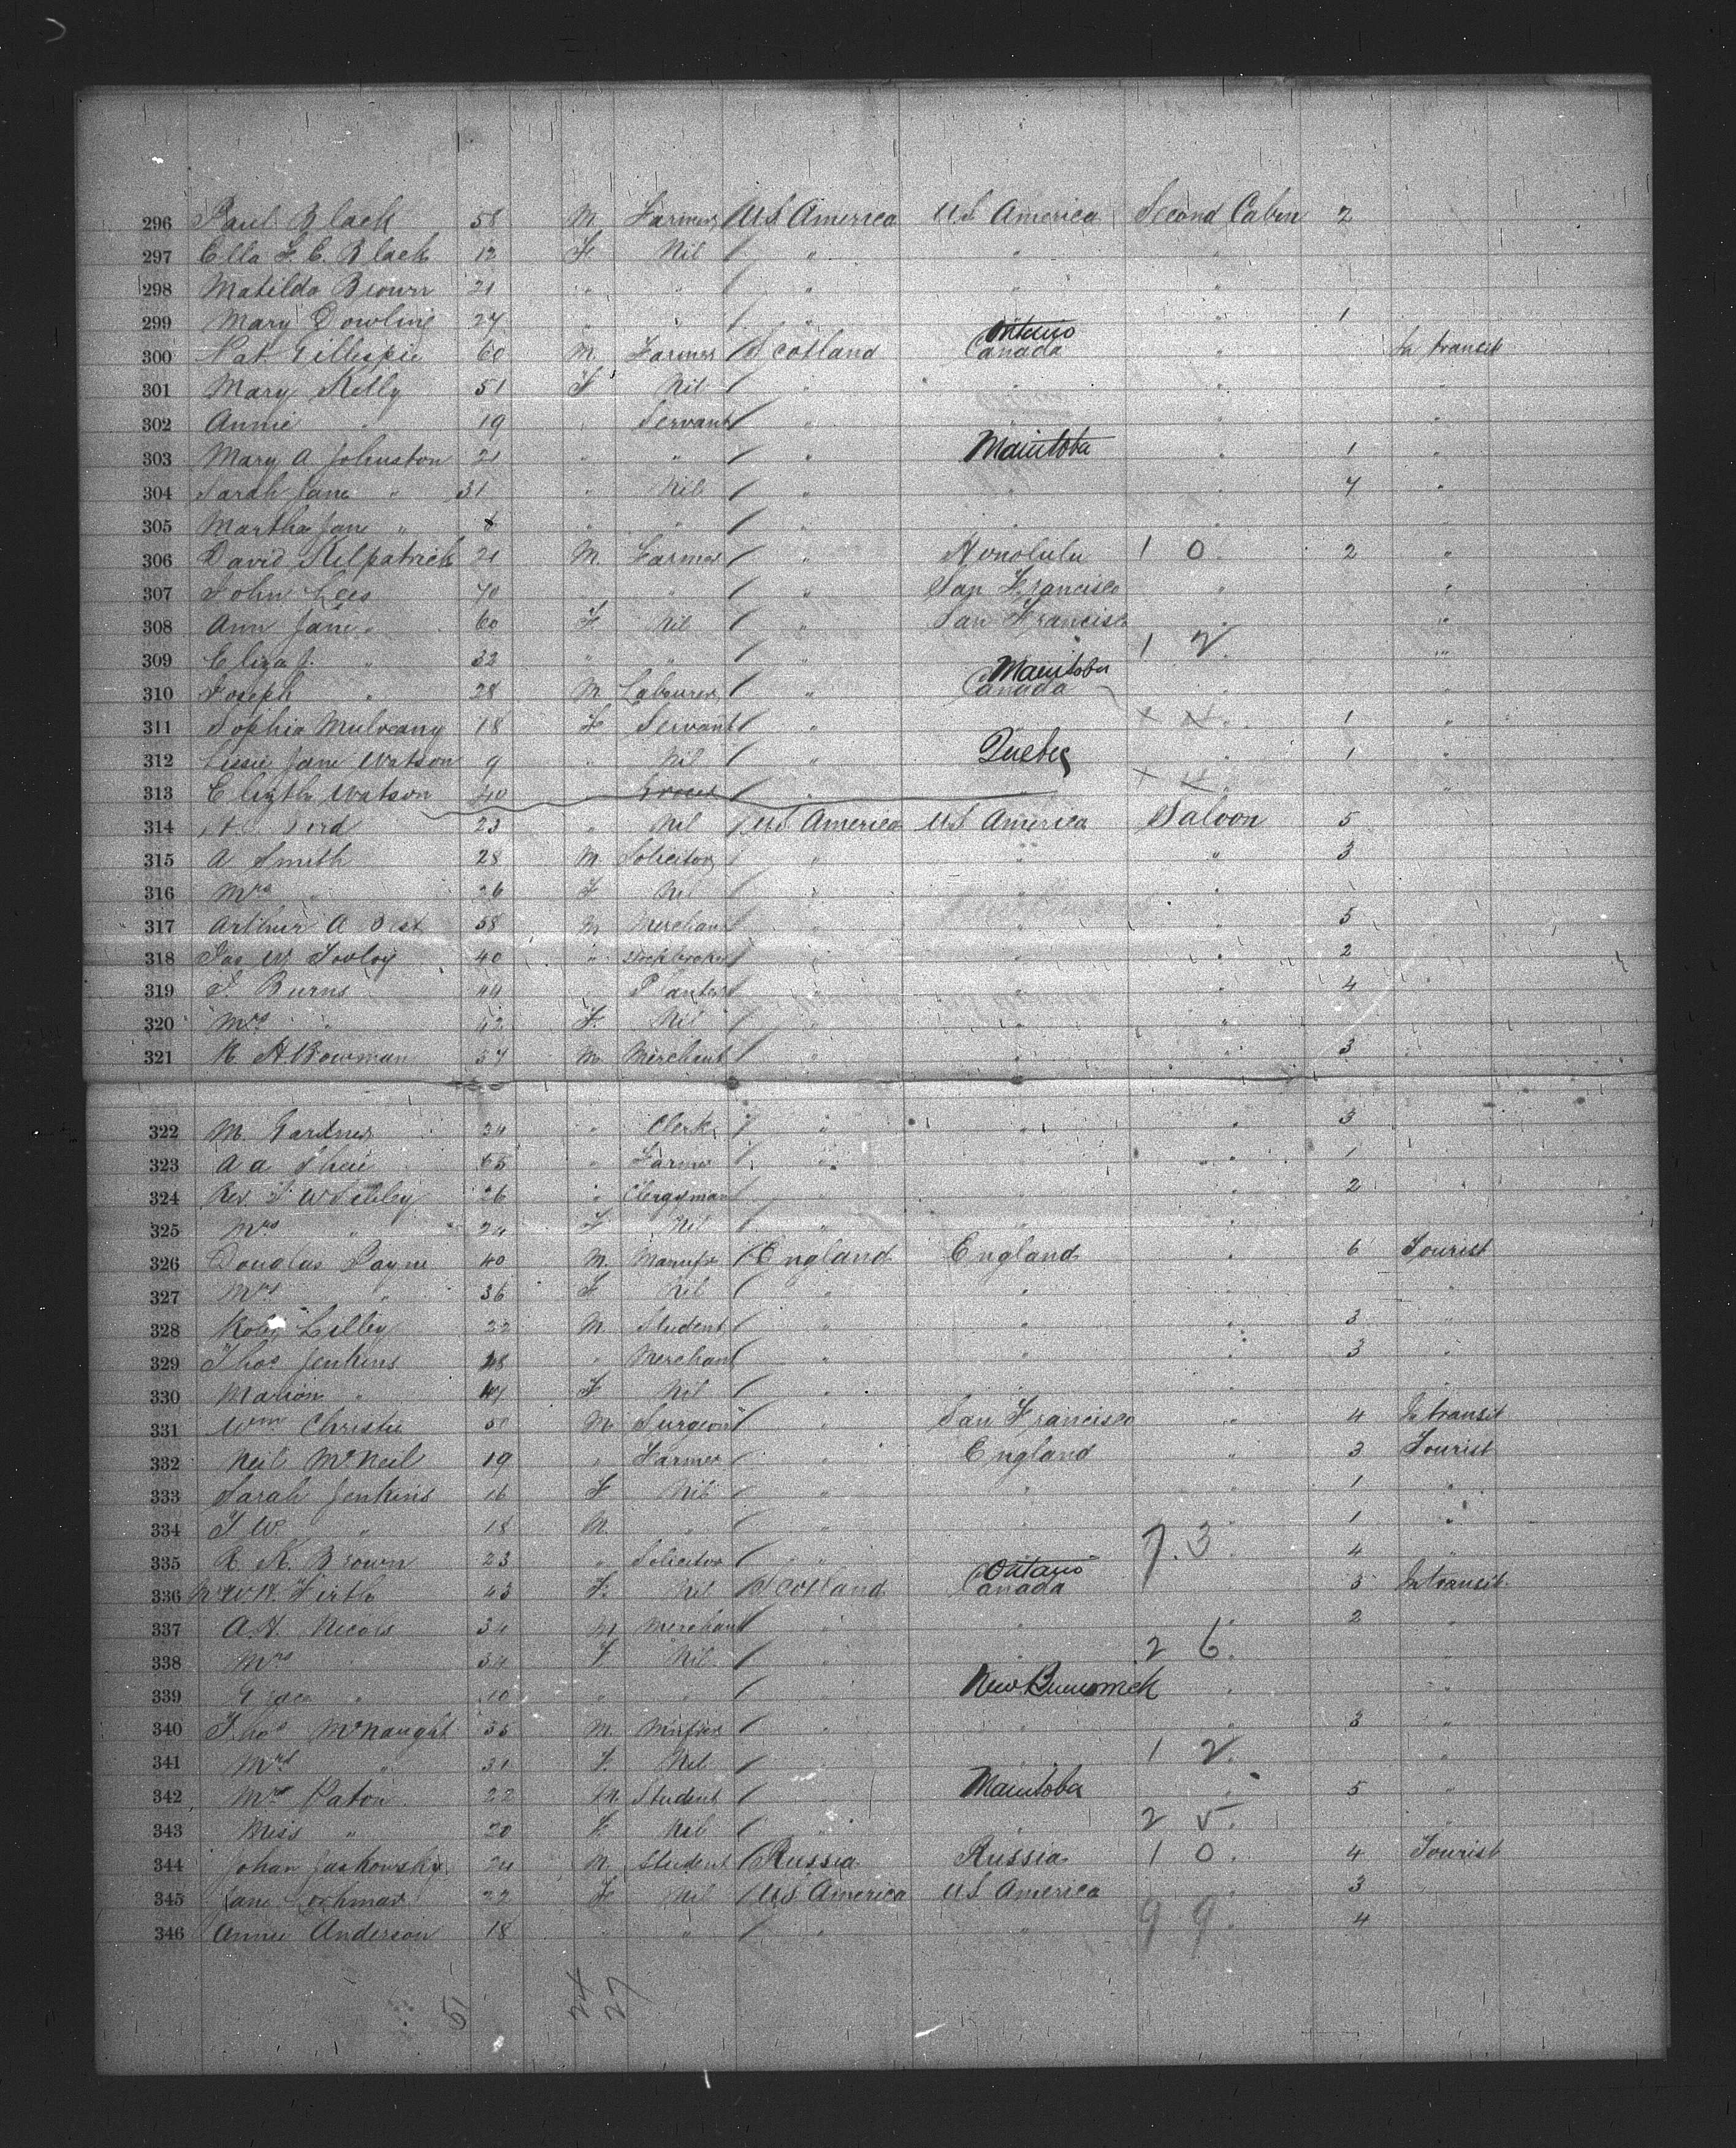 296 Paul Black 58 M. Farmer U.S. America U.S. America Second Cabin 2
297 Ella F. C. Black 12 F Nil " " "
298 Matilda Brown 21 " " " " "
299 Mary Dowling 24 " " " " " 1
Ontario
300 Pat Gillespie 60 M. Farmer Scotland Canada " In transit
301 Mary Kelly 51 F Nil " " " "
302 Annie " 19 " Servant " " "
303 Mary A Johnston 21 " " " Manitoba " 1 "
304 Sarah Jane " 31 " Nil " " " 4 "
305 Martha Jane " " " " " "
306 David Kilpatrick 21 M. Farmer " Honolulu 1 0 2 "
307 John Lees 70 " " " San Francisco " "
308 Ann Jane " 60 F Nil " San Francisco "
309 Eliza J. " 32 " " " 1 2 "
Manitoba
310 Joseph " 28 M Labourer " Canada " "
311 Sophia Mulveany 18 F Servant " 1 "
312 Lissie Jane Watson 9 " Nil " Quebec " 1 "
313 Elizth Watson 40 " " "
314 23 " Nil U.S America U.S America Saloon 5
315 A Smith 28 M. Solicitor " " " 3
316 Mrs " 26 F Nil " " "
317 Arthur A 58 M Merchant " " " 5
318 Jas W 40 " Stockbroker " " 2
319 Burns 44 " Planter " " " 4
320 Mrs " 42 F. Nil " " "
321 H Bowman 57 M. Merchant " " " 3
322 M. Gardner 34 " Clerk " " " 3
323 A A 65 " Farmer " " " 1
324 Rev. 26 " Clergyman " " " 2
325 Mrs " 24 F Nil " " "
326 Douglas Payne 40 M. England England " 6 Tourist
327 Mrs " 36 F Nil " " " "
328 Lilley 22 M. Student " " " 3 "
329 Thos Jenkins " Merchant " " " 3 "
330 Marion " F Nil " " "
331 Wm Christie 50 M. Surgeon " San Francisco " 4 In transit
332 Neil McNeil 19 " Farmer " England " 3 Tourist
333 Sarah Jenkins 16 F Nil " " " 1 "
334 " 18 M. " " " " 1 "
335 R. K. Brown 23 " Solicitor " 7 3 4 "
Ontario
336 Firth 43 F. Nil Scotland Canada 3 In transit
337 A. H. Nicols 34 M Merchant " " " 2 "
338 Mrs " 34 F Nil " 2 6 "
339 " 10 " " " New Brunswick " "
340 Thos McNaught 35 M. " " " 3 "
341 Mrs " 31 F. Nil " " 1 2 "
342 Mr Paton 22 M. Student " Manitoba " 5 "
343 Miss " 20 F. Nil " " 2 5 "
344 Johan 24 M. Student Russia Russia 1 0 4 Tourist
345 Jane 22 F Nil U.S America U.S America 3
346 Annie Anderson 18 " " " " 9 9 4
51 24
27